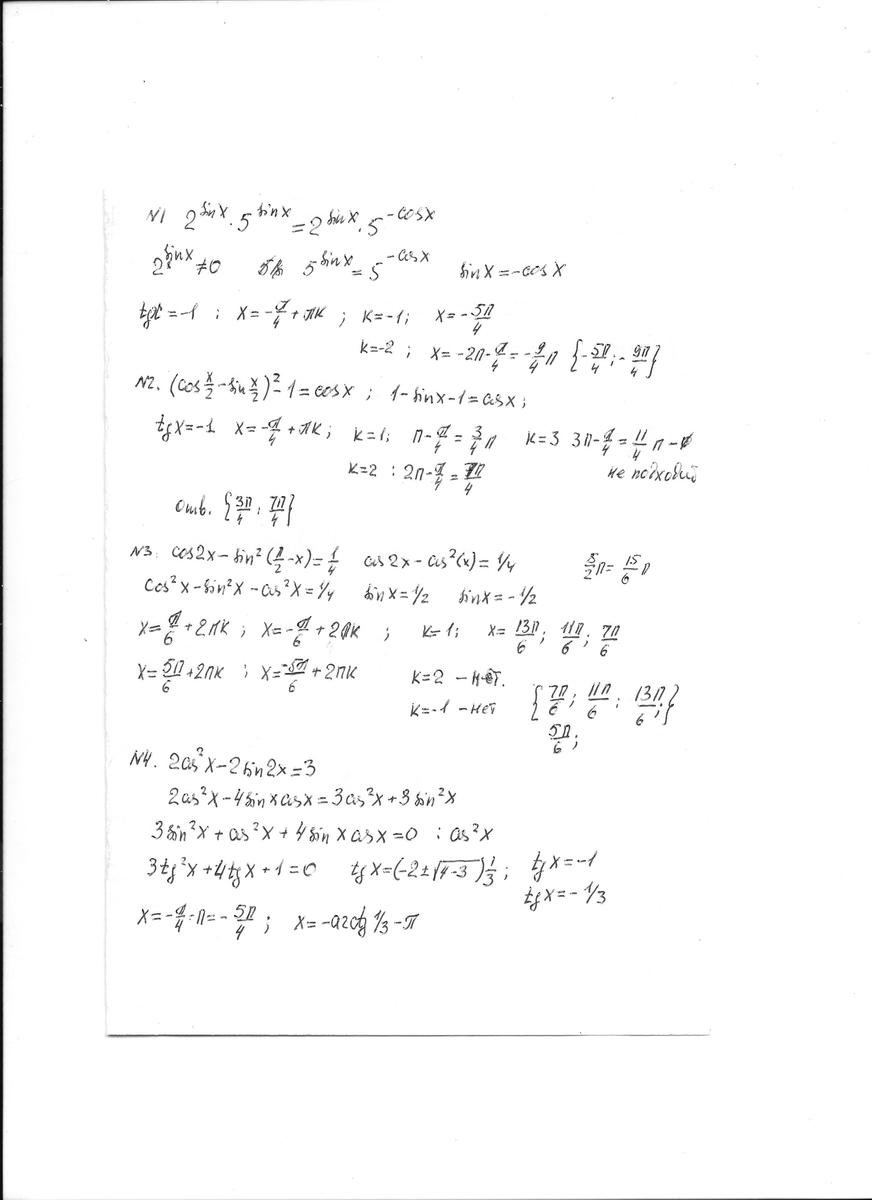 N1 2^sinx · 5^sinx = 2^sinx · 5^-cosx
2^sinx ≠0 5^sinx = 5^-cosx sinx = -cosx
tgx = -1 ; x = -π/4 + πk ; k=-1; x = -5π/4
k=-2 ; x = -2π - π/4 = -9/4 π {-5π/4 ; -9π/4}
N2. (cos x/2 - sin x/2)² - 1 = cosx ; 1 - sinx - 1 = cosx ;
tgx = -1 x = -π/4 + πk ; k=1; π - π/4 = 3/4 π k=3 3π - π/4 = 11/4 π -
k=2 : 2π - π/4 = 7π/4 не подходит
Отв. {3π/4 ; 7π/4}
N3. cos2x - sin²(π/2 - x) = 1/4 cos2x - cos²(x) = 1/4 5/2 π = 15/6 π
cos²x - sin²x - cos²x = 1/4 sinx = 1/2 sinx = -1/2
x = π/6 + 2πk ; x = -π/6 + 2πk ; k=1; x = 13π/6 ; 11π/6 ; 7π/6
x = 5π/6 + 2πk ; x = -5π/6 + 2πk k=2 - нет.
k=-1 - нет {7π/6 ; 11π/6 ; 13π/6 ;}
5π/6 ;
N4. 2cos²x - 2sin2x = 3
2cos²x - 4sinxcosx = 3cos²x + 3sin²x
3sin²x + cos²x + 4sinxcosx = 0 : cos²x
3tg²x + 4tgx + 1 = 0 tgx = (-2±√4-3)1/3 ; tgx = -1
tgx = -1/3
x = -π/4 - π = -5π/4 ; x = -arctg 1/3 - π